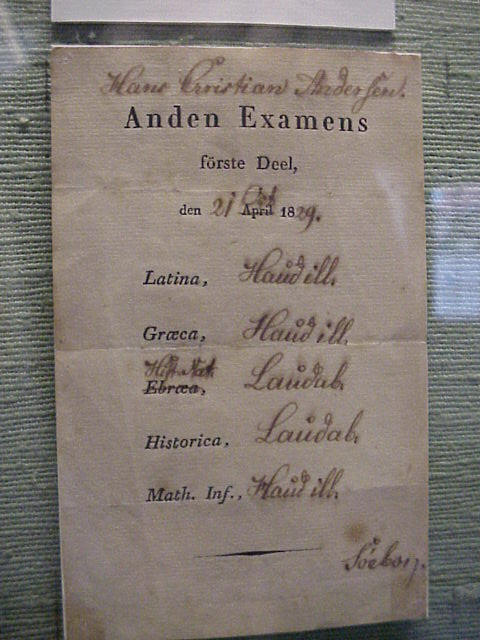 Hans Christian Andersen.
Anden Examens
förste Deel,
den 21 Oct April 1829.
Latina, Haud ill.
Græca, Haud ill.
Hist. Nat.
Ebræa, Laudab.
Historica, Laudab.
Math. Inf., Haud ill.